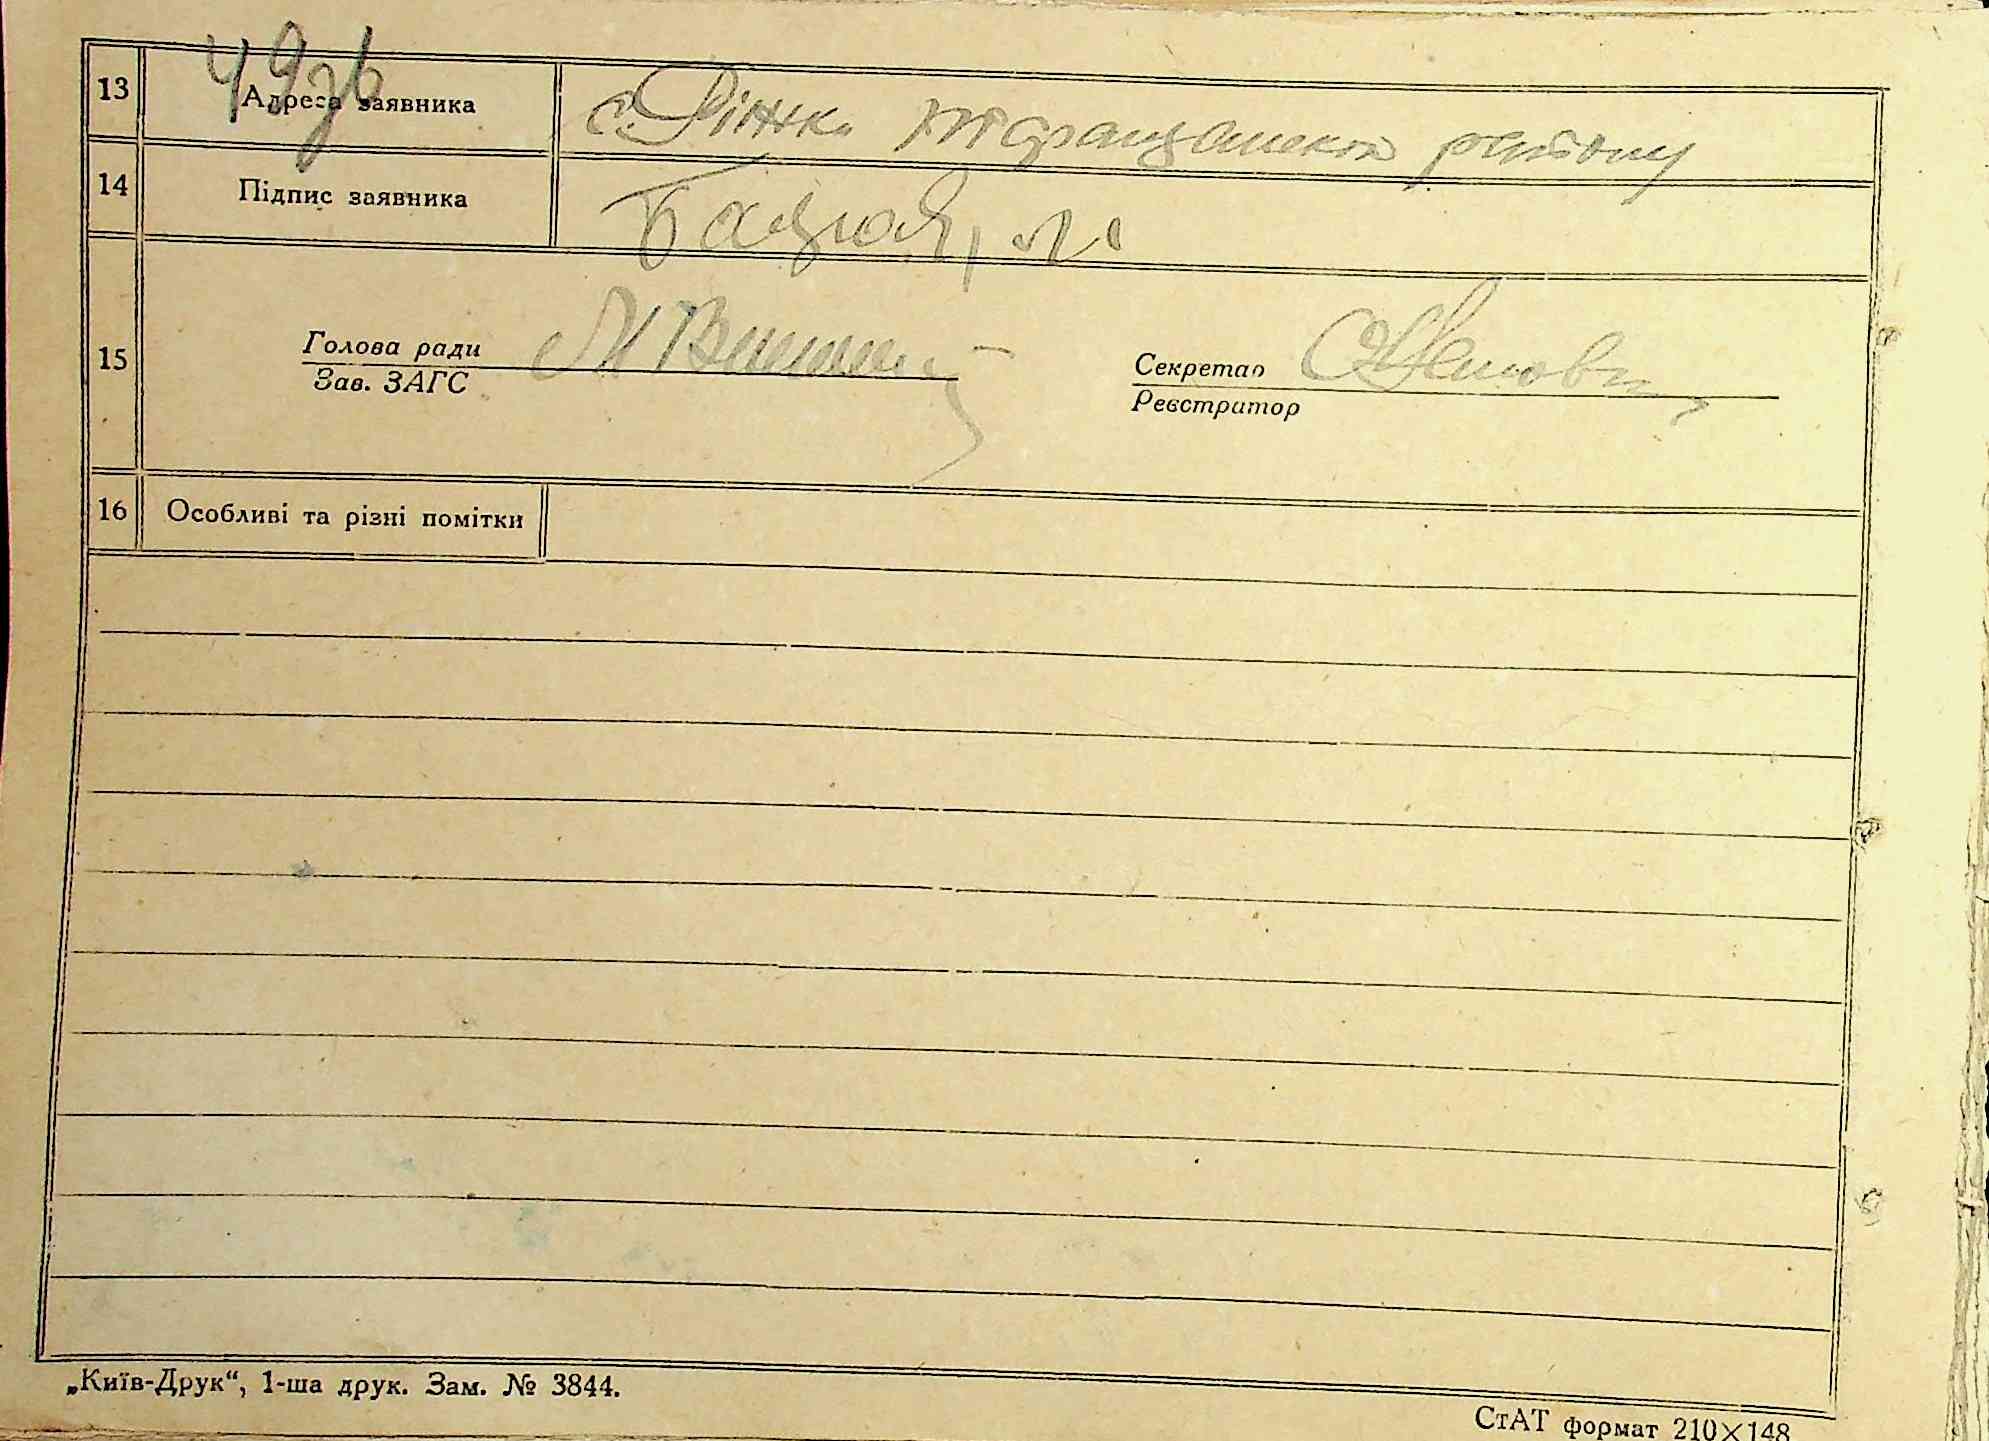 49зв
13 Адреса заявника с. Ріжки Таращанского району
14 Підпис заявника
15 Голова ради
Зав. ЗАГС
Секретар
Реєстратор
16 Особливі та різні помітки
„Київ-Друк“, 1-ша друк. Зам. № 3844.
СтАТ формат 210×148